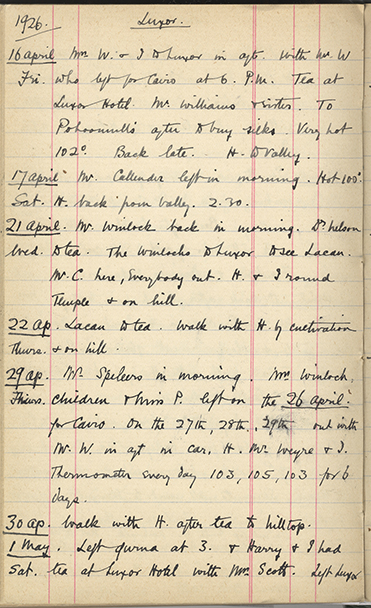 1926. Luxor.
16 april Mrs W. & I to Luxor in aft. with Mr W
Fri. who left for Cairo at 6. P.M. Tea at
Luxor Hotel Mr. Williams & sister. To
Pohoomull's after to buy silks. Very hot
102° Back late. H. to Valley.
17 april Mr. Callender left in morning. Hot 100°
Sat. H. back from valley. 2.30.
21 april. Mr Winlock back in morning. Dr. Nelson
Wed. to tea. The Winlocks to Luxor to see Lacau.
Mr. C. here, Everybody out. H. & I round
Temple & on hill.
22 ap. Lacau to tea. Walk with H. by cultivation
Thurs. & on hill.
29 ap. Mr. Speleers in morning. Mrs Winlock,
Thurs. children & Miss P. left on the 26 april
for Cairo. On the 27th, 28th, 29th out with
Mr. W. in aft in car, H. Mr. Weyre & I.
Thermometer every day 103, 105, 103 for 6
days.
30 ap. Walk with H. after tea to hilltop.
1 May. Left Gurna at 3. & Harry & I had
Sat. tea at Luxor Hotel with Mr. Scott. Left Luxor